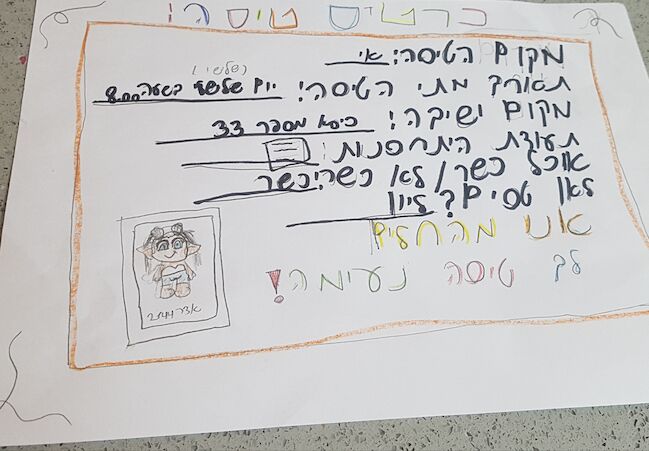 כרטיס טיסה!
מקום הטיסה: אי
(שלשי)
תאריך מתי הטיסה: יום שלשי בשעה 8.00
מקום ישיבה: כיסא מספר 33
תעודת התחפנות:
אוכל כשר / לא כשר: כשר
לאן טסים? ליוון
אני
לב טיסה נעימה!